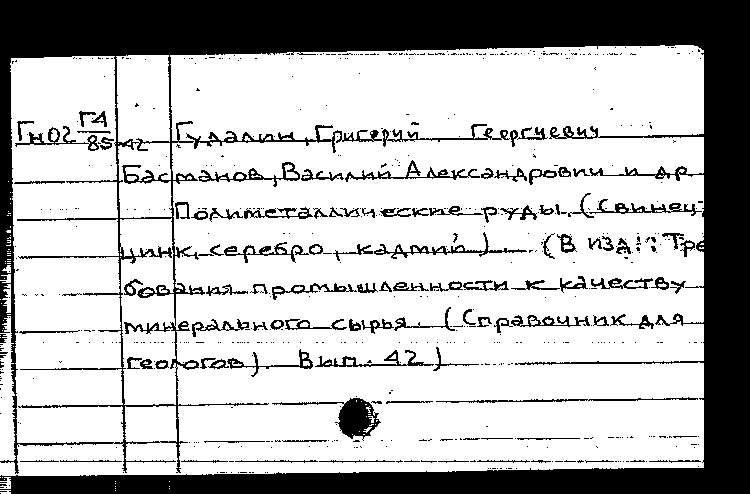 Гн02 Г4/85-42 Гудалин, Григорий Георгиевич
Басманов, Василий Александрович и др
Полиметаллические руды. (Свинец,
цинк, серебро, кадмий). (В изд.: Тре
бования промышленности к качеству
минерального сырья. (Справочник для
геологов). Вып. 42)